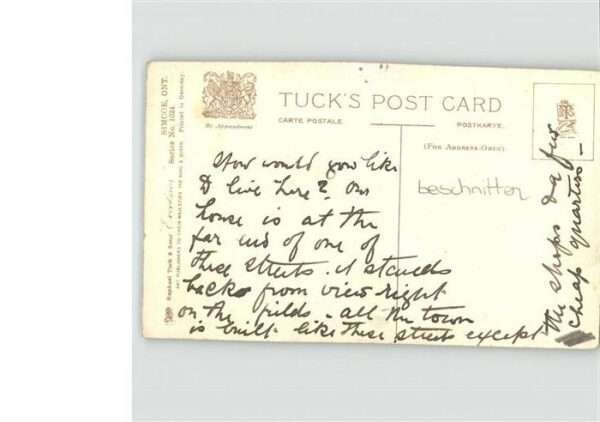 SIMCOE, ONT.
Series No. 1024
Printed in Germany.
Raphael Tuck & Sons'
ART PUBLISHERS TO THEIR MAJESTIES THE KING & QUEEN.
By Appointment
TUCK'S POST CARD
CARTE POSTALE.
POSTKARTE.
(FOR ADDRESS ONLY.)
beschnitten
How would you like
to live here? Our
house is at the
far end of one of
these streets. it stands
back from view right
on the fields - all the town
is built like these streets except
the shops and a few
cheap quarters -